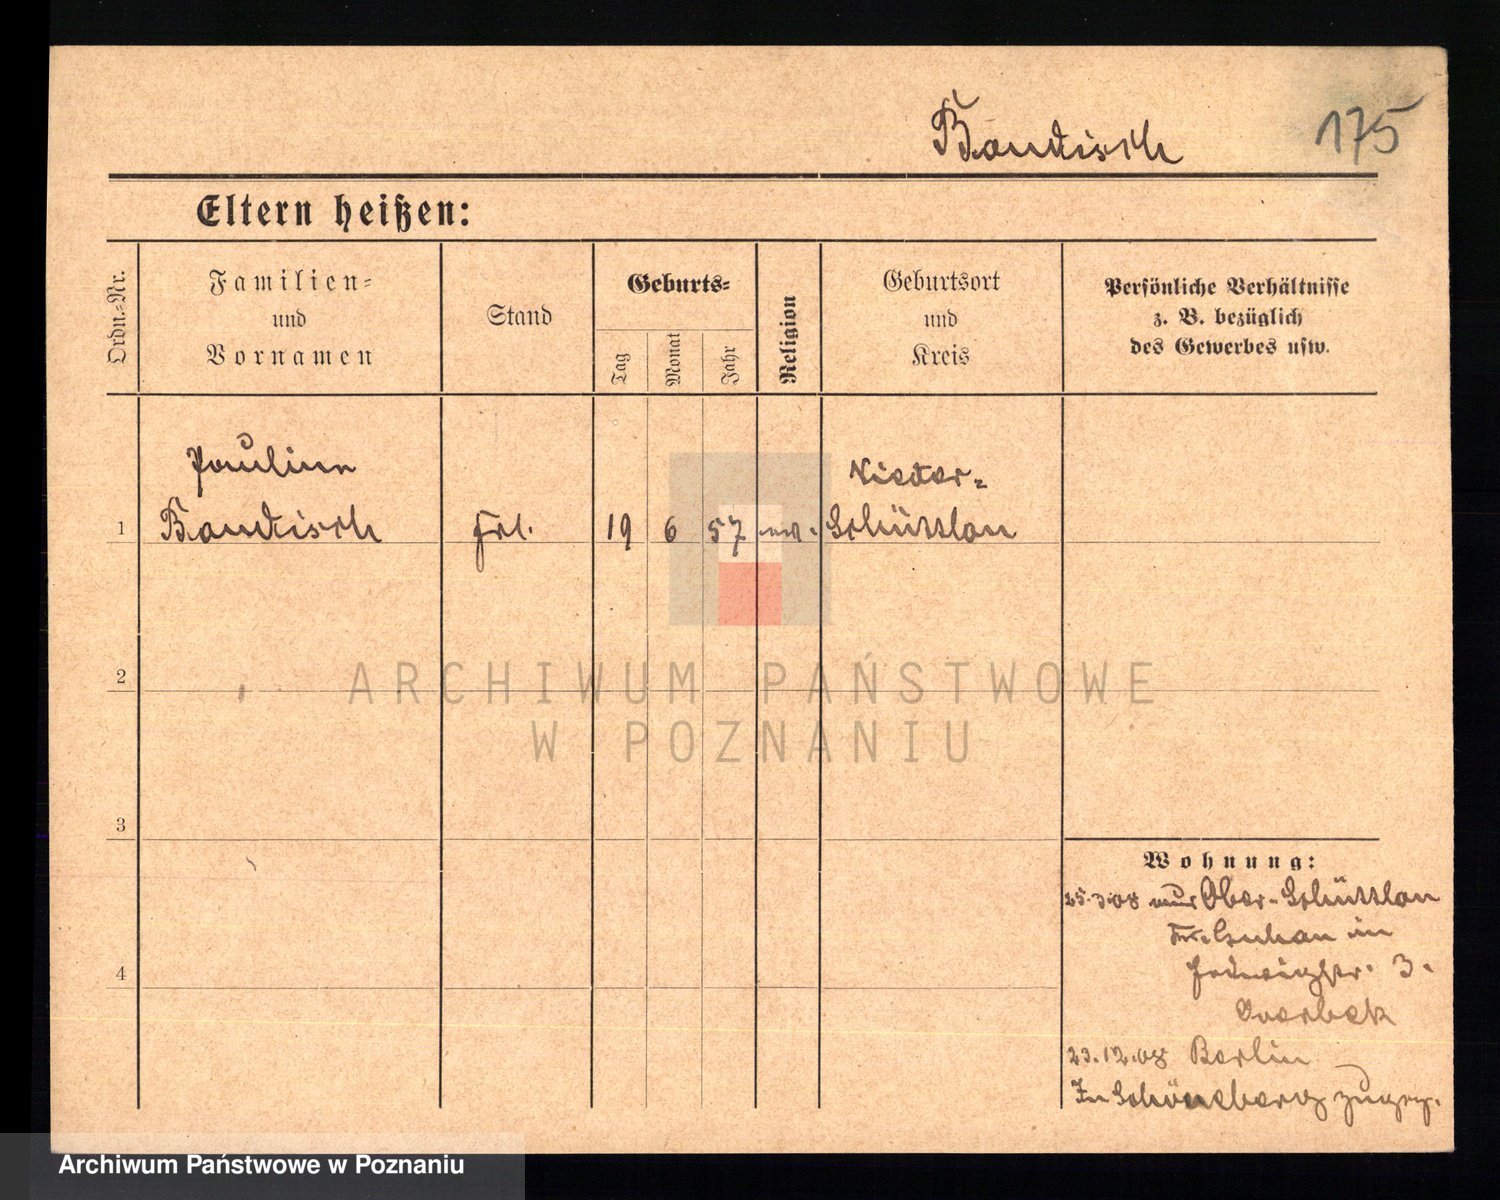 Baudisch 175
Eltern heißen:
Ordn.-Nr.
Familien-
und
Vornamen
Stand
Geburts-
Tag
Monat
Jahr
Religion
Geburtsort
und
Kreis
Persönliche Verhältnisse
z. B. bezüglich
des Gewerbes usw.
Pauline Nieder-
1 Baudisch Frl. 19 6 57 Schüttlau
2
ARCHIWUM PAŃSTWOWE
W POZNANIU
3
Wohnung:
25.3.08 Ober-Schüttlau
Kr. Guhrau in
Hedwigstr. 3.
4
Overbeck
23.12.08 Berlin
In Schöneberg zugez.
Archiwum Państwowe w Poznaniu